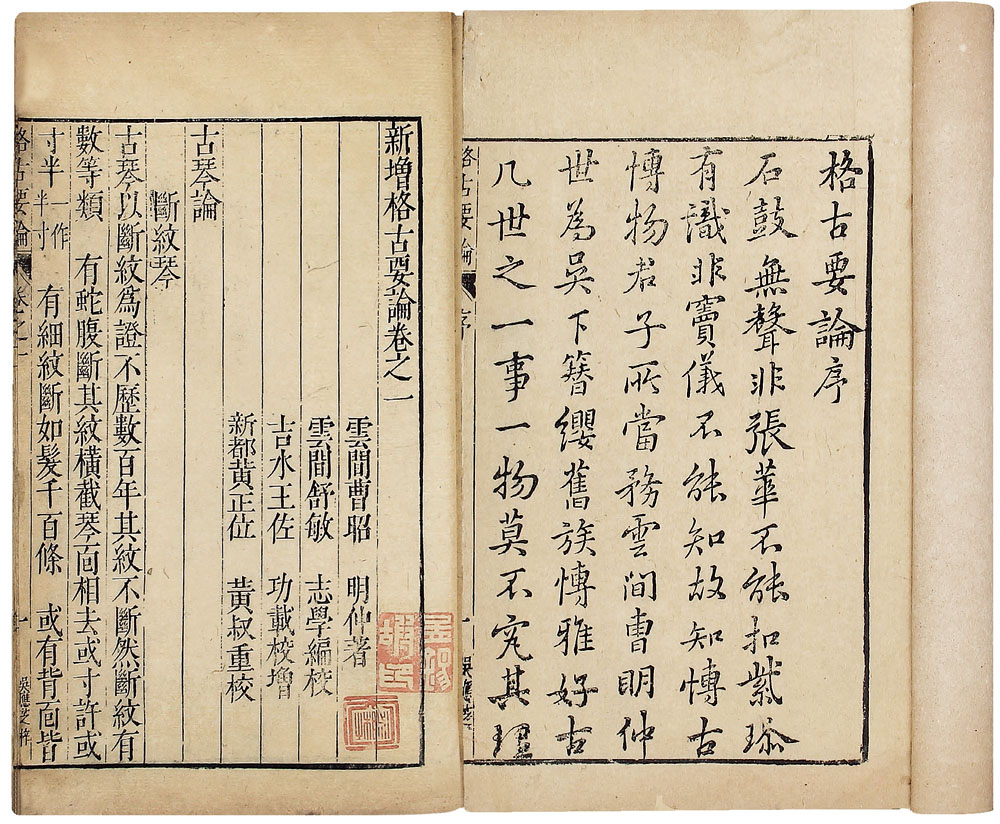 格古要論序
石鼓無聲非張華不能扣紫珎
有識非竇儀不能知故知博古
博物君子所當務雲間曹明仲
世為吳下簪纓舊族博雅好古
凡世之一事一物莫不究其理
格古要論 序
新增格古要論卷之一
雲間曹昭 明仲著
雲間舒敏 志學編校
吉水王佐 功載校增
新都黃正位 黃叔重校
古琴論
斷紋琴
古琴以斷紋爲證不歷數百年其紋不斷然斷紋有
數等類 有蛇腹斷其紋橫截琴面相去或寸許或
寸半 一作半寸 有細紋斷如髮千百條 或有背面皆
格古要論 卷之一 一